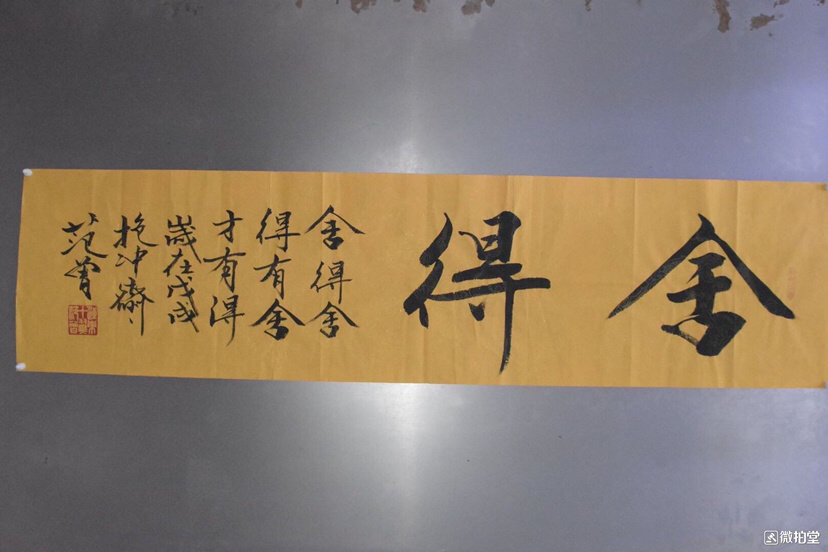 舍得
舍得舍
得有舍
才有得
歲在戊戌
抱冲齋
范曾
微拍堂